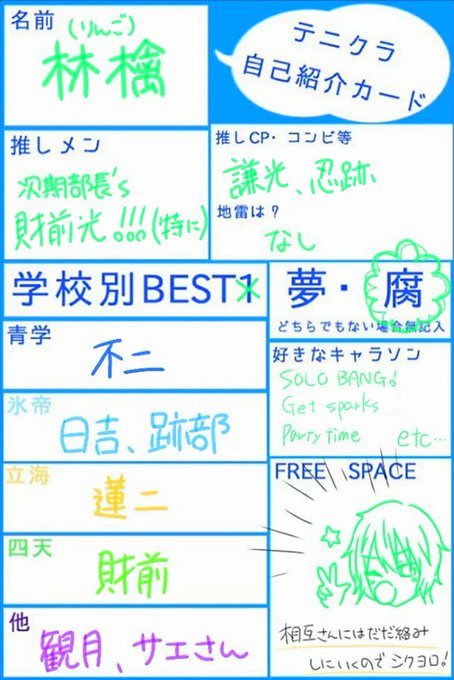 名前
(りんご)
林檎
テニクラ
自己紹介カード
推しメン
次期部長's
財前光!!!(特に)
推しCP・コンビ等
謙光、忍跡
地雷は?
なし
学校別BEST1
夢・腐
どちらでもない場合無記入
青学
不二
氷帝
日吉、跡部
立海
蓮二
四天
財前
他
観月、サエさん
好きなキャラソン
SOLO BANG!
Get sparks
Party time etc…
FREE SPACE
相互さんにはだだ絡み
しにいくのでシクヨロ!